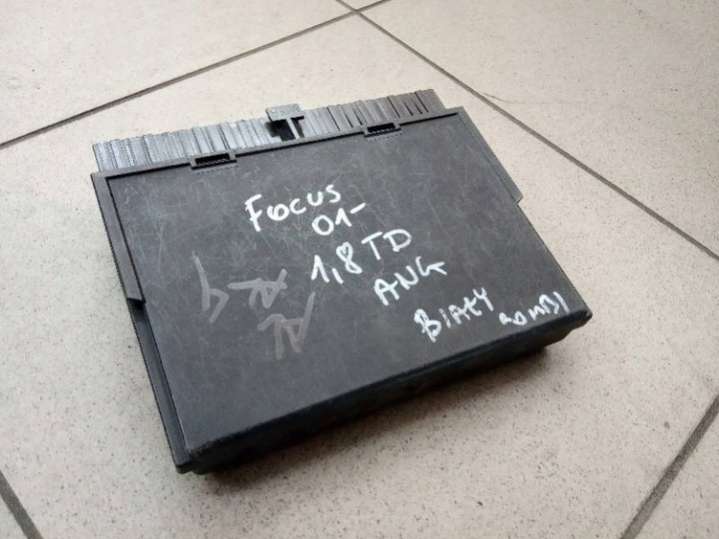 Focus
01-
1,8 TD
ANG
BIAŁY KOMBI